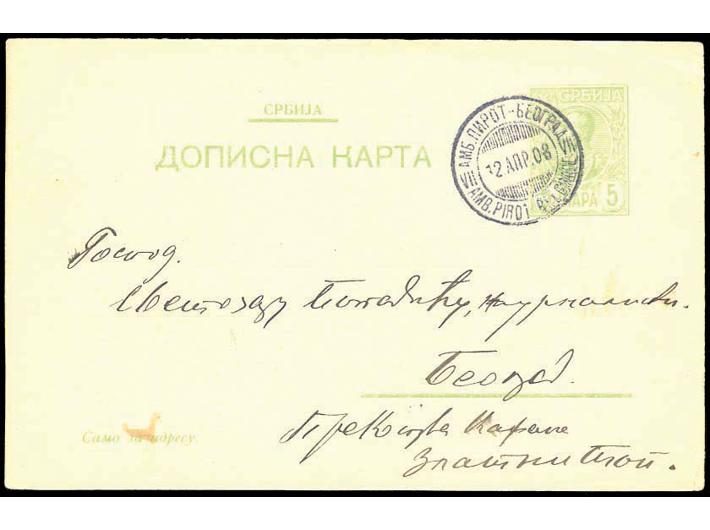 СРБИЈА
ДОПИСНА КАРТА
СРБИЈА
5 ПАРА 5
АМБ. ПИРОТ-БЕОГРАД
12 АПР. 08
VII
AMB. PIROT BELGRADE
Господ.
Светозару журналисти.
Београд.
Преко пута Кафане
Златни Топ.
Само за адресу.